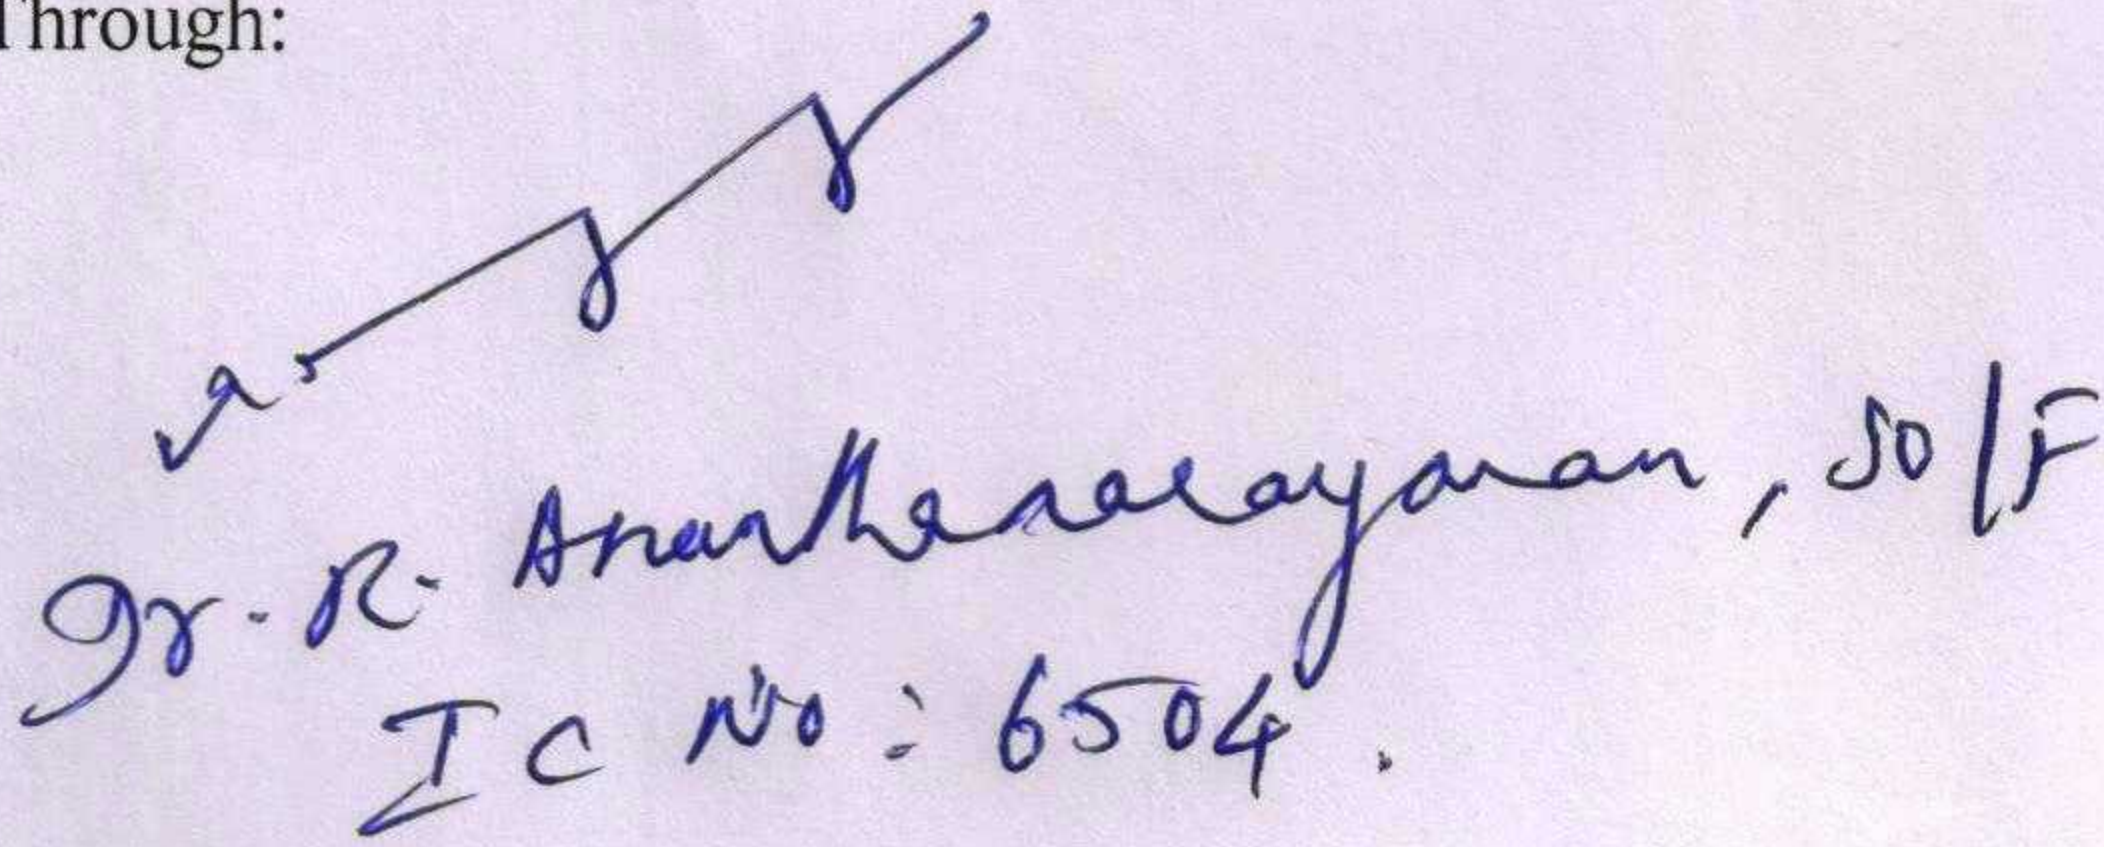 Through:
Dr. R. Ananthanarayanan, SO/F
IC No: 6504.